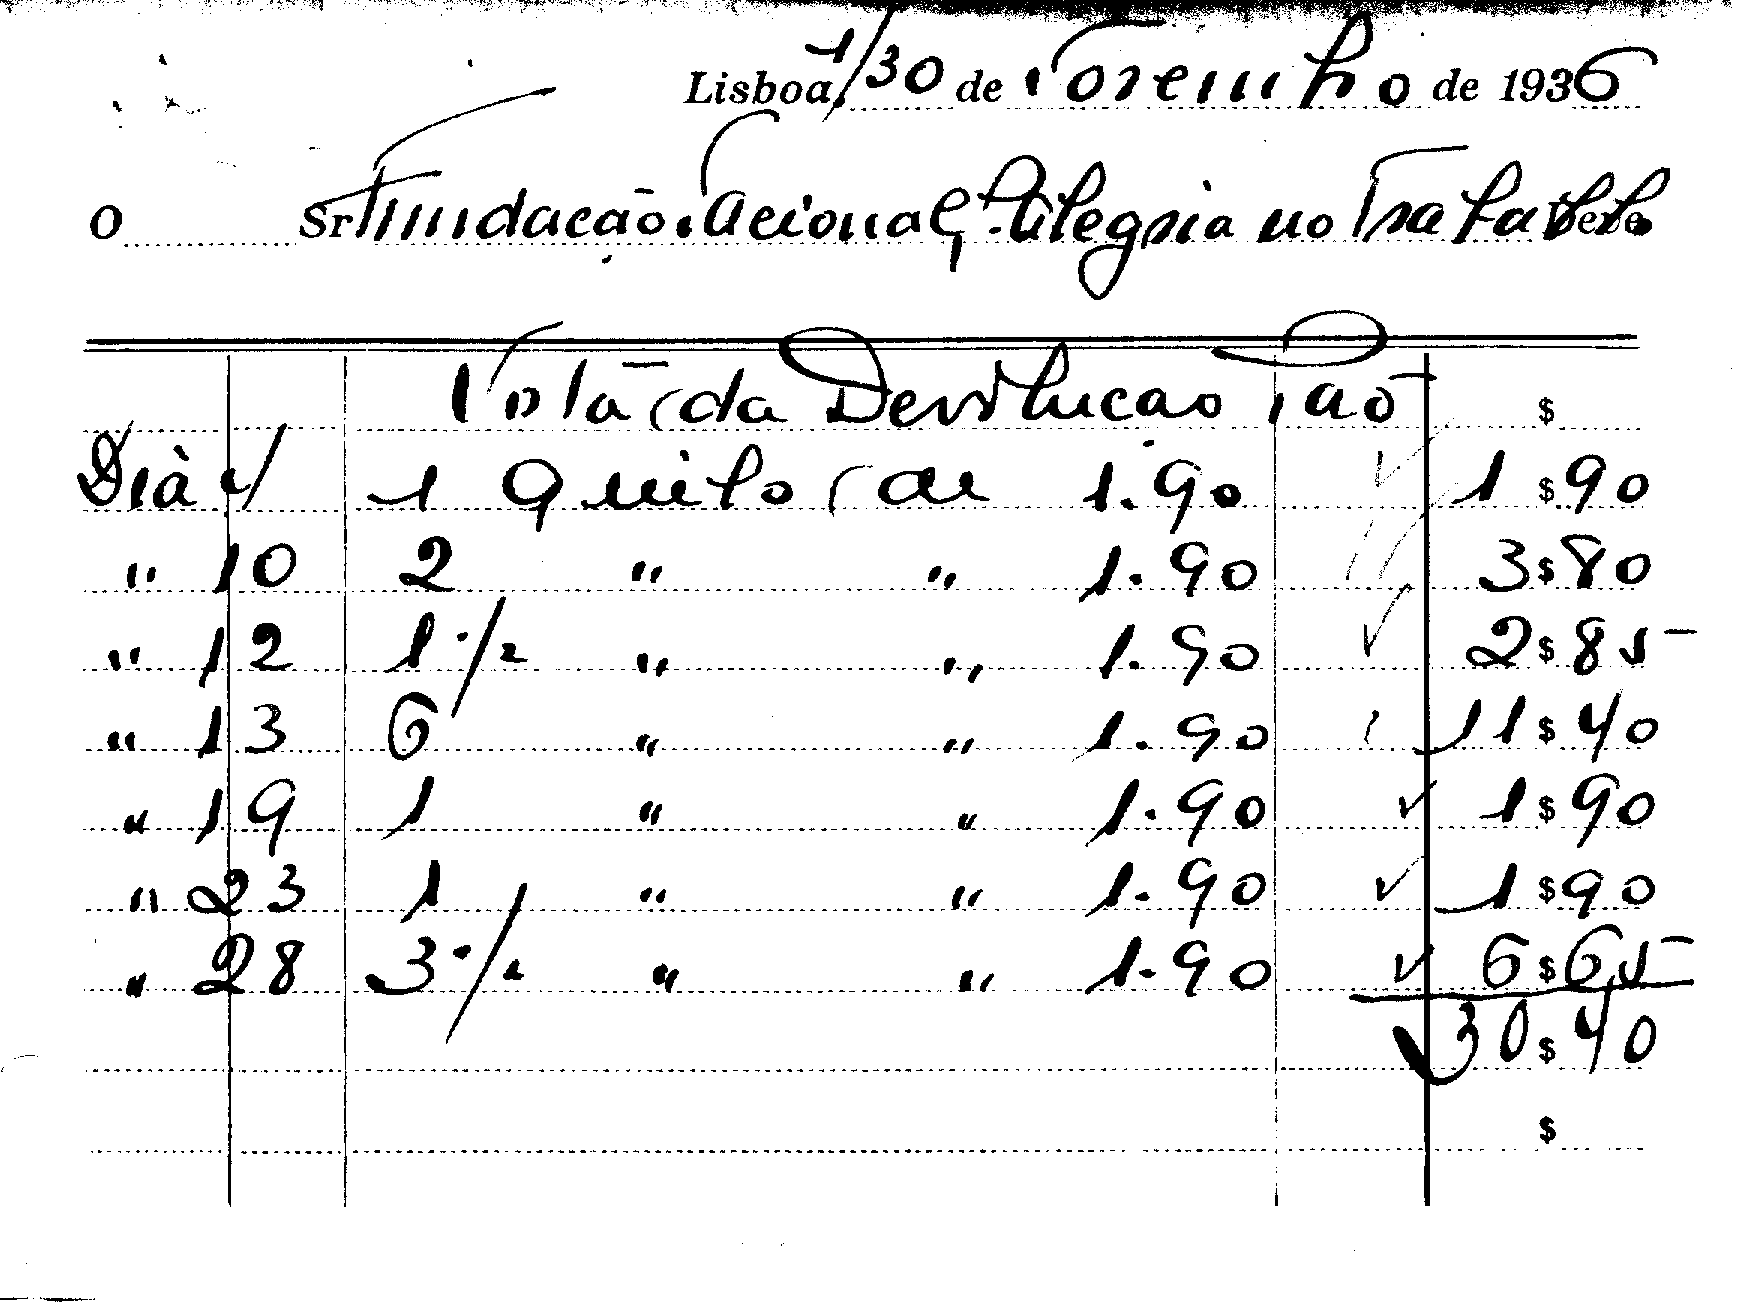 Lisboa, 1/30 de Novembro de 1936
O Sr Fundacão Nacional Alegria no Trabalho
Nota da Devolucao Pão $
Dià 4 1 Quilo de 1.90 1$90
" 10 2 " " 1.90 3$80
" 12 1 1/2 " " 1.90 2$85
" 13 6 " " 1.90 11$40
" 19 1 " " 1.90 1$90
" 23 1 " " 1.90 1$90
" 28 3 1/2 " " 1.90 6$65
30$40
$